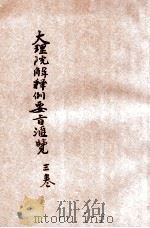 大理院解释例要旨滙覽
三卷